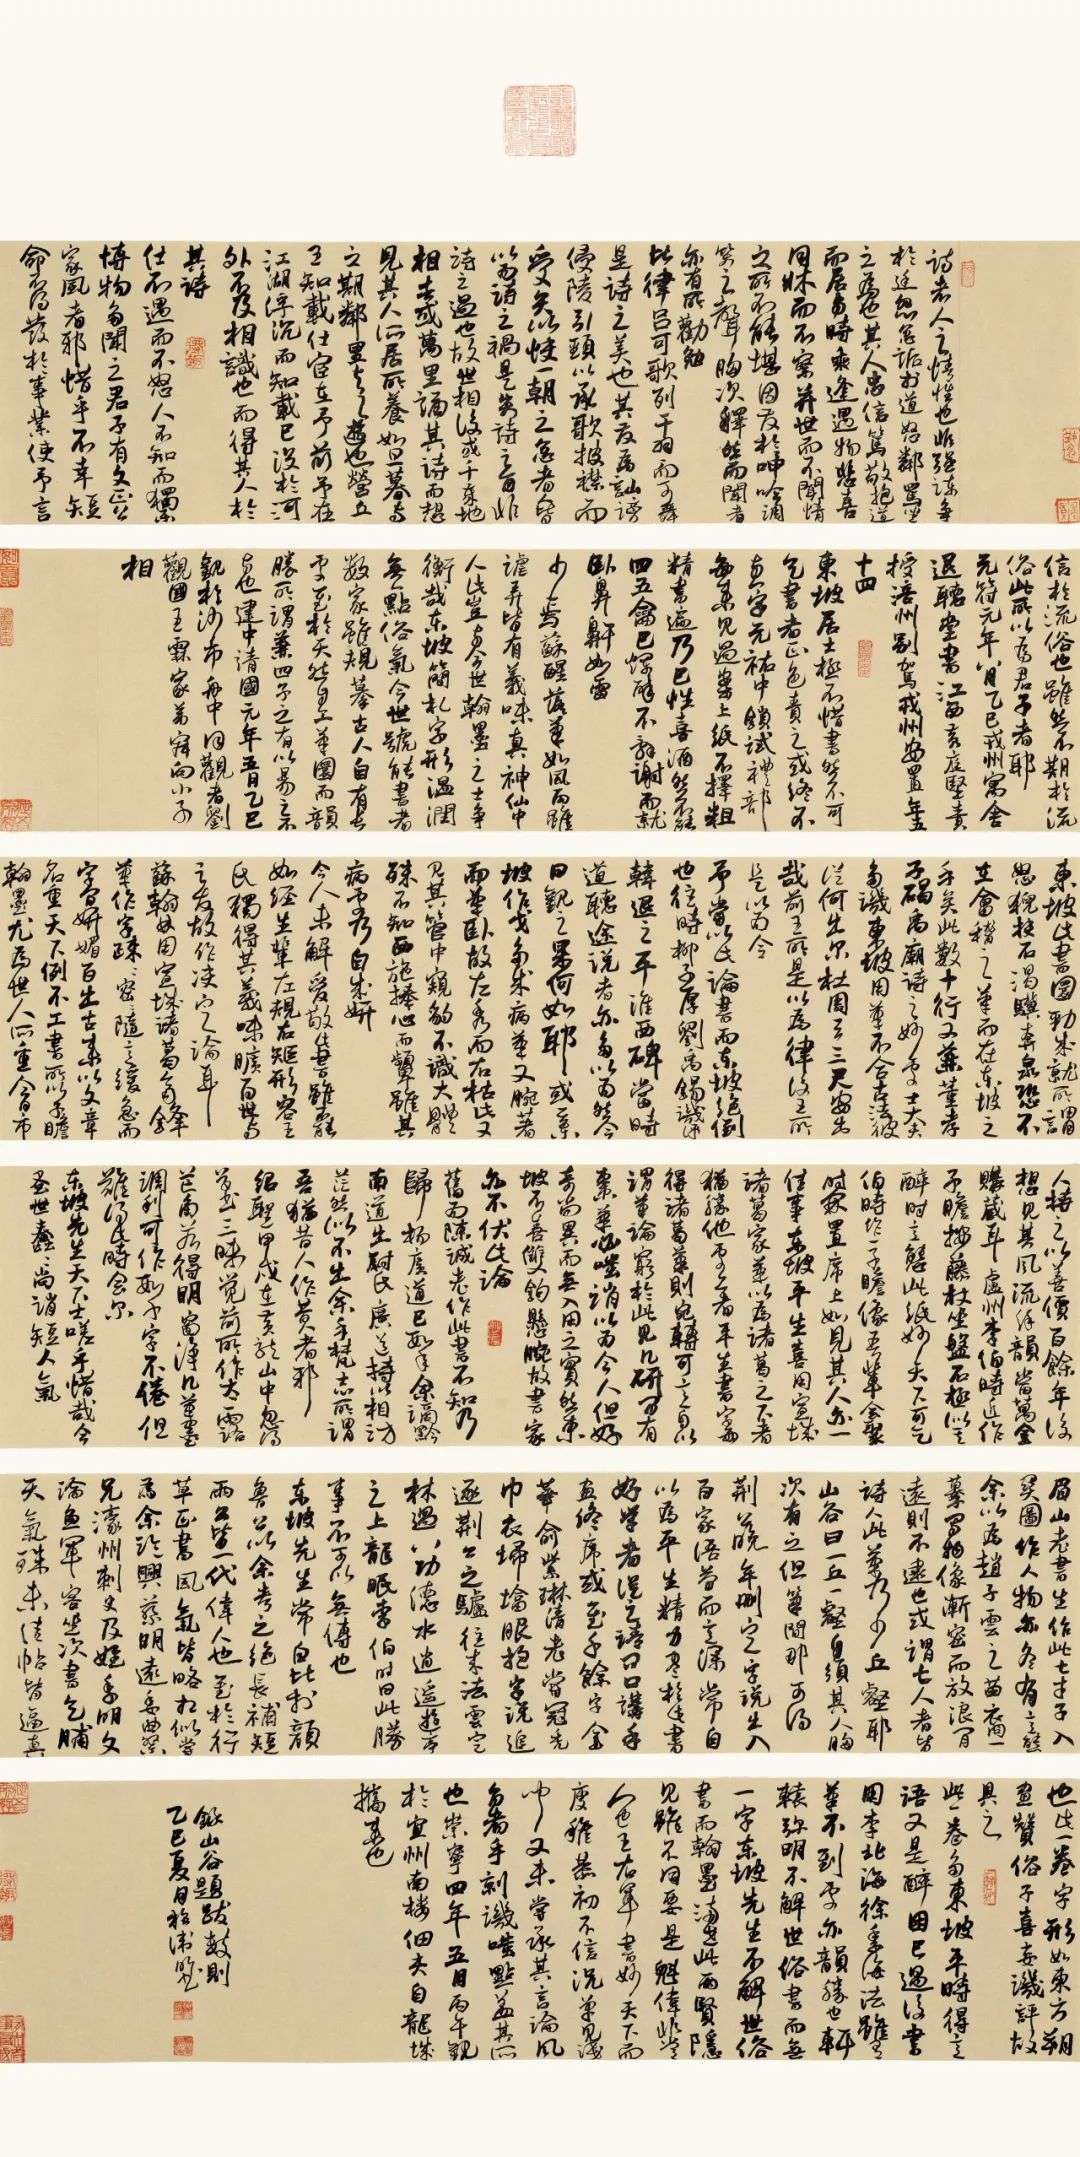 詩者人之情性也非強諫爭
於廷怨忿詬於道怒鄰罵坐
之為也其人忠信篤敬抱道
而居與時乖逢遇物悲喜
同牀而不察並世而不聞情
之所不能堪因發於呻吟調
笑之聲胸次釋然而聞者
亦有所勸勉
比律呂可歌列干羽而可舞
是詩之美也其發為訕謗
侵陵引頸以承戈披襟而
受矢以快一朝之忿者人皆
以為詩之禍是失詩之旨非
詩之過也故世相後或千歲地
相去或萬里誦其詩而想
見其人所居所養如旦暮與
之期鄰里與之遊也營丘
王知載仕宦在予前予在
江湖浮沉而知載已沒於河
外不及相識也而得其人於
其詩
仕不遇而不怒人不知而獨樂
博物多聞之君子有文正公
家風者邪惜乎不幸短
命不得發於事業使予言
信於流俗也雖然不期於流
俗此所以為君子者耶
元符元年八月乙巳戎州寓舍
退聽堂書江西黃庭堅責
授涪州別駕戎州安置年五
十四
東坡居士極不惜書然不可
乞書者正色責之或終不
與字元祐中鎖試禮部
每來見過案上紙不擇粗
精書遍乃已性喜酒然不能
四五龠已爛醉不辭謝而就
臥鼻鼾如雷
少焉蘇醒落筆如風雨雖
謔弄皆有義味真神仙中
人此豈與今世翰墨之士爭
衡哉東坡簡札字形溫潤
無點俗氣今世號能書者
數家雖規摹古人自有長
處至於天然自工筆圓而韻
勝所謂兼四子之有以易之不
與也建中靖國元年五月乙巳
觀於沙市舟中同觀者劉
觀國王霖家弟叔向小子
相
東坡此書圓勁成就所謂
怒猊抉石渴驥奔泉恐不
在會稽之筆而在東坡之
手矣此數十行又兼董孝
子碣禹廟詩之妙處士大夫
多譏東坡用筆不合古法彼
從何生尔杜周云三尺安出
哉前王所是以為律後王所
是以為令
予嘗以此論書而東坡絕倒
也往時柳子厚劉禹錫譏評
韓退之平淮西碑當時
道聽途說者亦多以為然今
日觀之果何如耶或云東
坡作戈多成病筆又腕著
而筆臥故左秀而右枯此又
見其管中窺豹不識大體
殊不知西施捧心而顰雖其
病處乃自成妍
今人未解愛敬此書雖當
如經生輩左規右矩形容王
氏獨得其義味曠百世與
之友故作決定論耳
蘇翰林用宣城諸葛齊鋒
筆作字疎疎密密隨意緩急而
字間妍媚百出古來以文章
名重天下例不工書所以子瞻
翰墨尤為世人所重今日市
人持之以得善價百餘年後
想見其風流餘韻當萬金
購藏耳盧州李伯時近作
子瞻按藤杖坐盤石極似其
醉時意態此紙妙天下可乞
伯時作子瞻像吾輩會聚
時開置席上如見其人亦一
佳事東坡平生喜用宣城
諸葛家筆以為諸葛之下者
猶勝他處工者平生書字每
得諸葛筆則宛轉可意自以
謂筆論窮於此見几研間有
棗核筆必嗤誚以為今人但好
奇尚異而無入用之實然東
坡不善雙鉤懸腕故書家
亦不伏此論
舊為陳誠老作此書不知乃
歸楊廣道已數年余謫黔
南道出尉氏廣道持以相訪
茫然似不出余手梵志所謂
吾猶昔人作黃者邪
紹聖甲戌在黃龍山中忽得
草書三昧覺前所作太露
芒角若得明窗淨几筆墨
調利可作數千字不倦但
難得此時會尔
東坡先生天下士嗟乎惜哉今
蚤世蠢蠢尚誚短人氣
眉山老書生作此七才子入
關圖作人物亦各有意態
余以為趙子雲之苗裔
摹寫物像漸密而放浪閒
遠則不逮也或謂七人者皆
詩人此筆乃少丘壑耶
山谷曰一丘一壑自須其人胸
次有之但筆間那可得
荊公晚年刪定字說出入
百家語簡而意深常自
以為平生精力盡於此書
好學者從之請問口講手
畫終席或至千餘字金
華俞紫琳清老嘗冠禿
巾衣掃塔服抱字說追
逐荊公之驢往來法雲定
林過八功德水逍遙遊亭
之上龍眠李伯時曰此勝
事不可以無傳也
東坡先生常自比於顏
魯公以余考之絕長補短
兩公皆一代偉人也至於行
草正書風氣皆略相似嘗
為余臨與蔡明遠委曲祭
兄濠州刺史及姪季明文
論魚軍容坐次書乞脯
天氣殊未佳帖皆逼真
也此一卷字形如東方朔
畫贊俗子喜妄譏評故
具之
此一卷多東坡平時得意
語又是醉困已過後書
用李北海徐季海法雖有
筆不到處亦韻勝也軒
轅彌明不解世俗書而無
一字東坡先生不解世俗
書而翰墨滿世此兩賢隱
見雖不同要是魁偉非常
人也王右軍書妙天下而
庾稚恭初不信況單見淺
聞又未嘗承其言論風
旨者乎刻譏嗤點蓋其所
也崇寧四年五月丙午觀
於宜州南樓細夫自龍城
攜來也
錄山谷題跋數則
乙巳夏日於沸